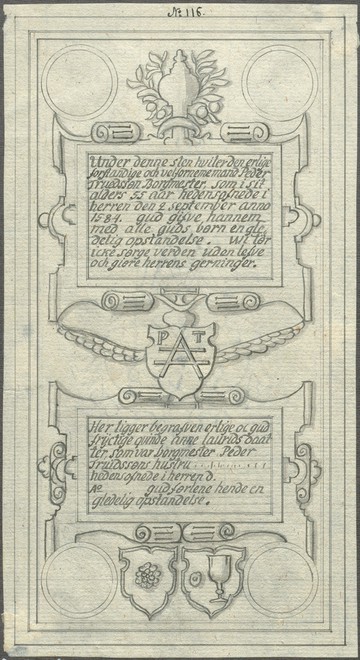 № 116.
Under denne sten hviler den erlige
forstandige och velfornemme mand Peder
Truedsøn Borgmester som i sit
alders 55 aar heden sofnede i
herren den 2 september anno
1584. gud gifve hannem
med alle guds børn en gle
delig opstandelse. wi tør
icke sørge verden uden lefve
och giøre herrens gerninger.
P T
Her ligger begrafven erlige oc gud
fryctige quinde laurids daat
ter som var borgmester Peder
Truidsøns hustru
hedensofnede i herren d.
Ao gud forlene hende en
gledelig opstandelse.